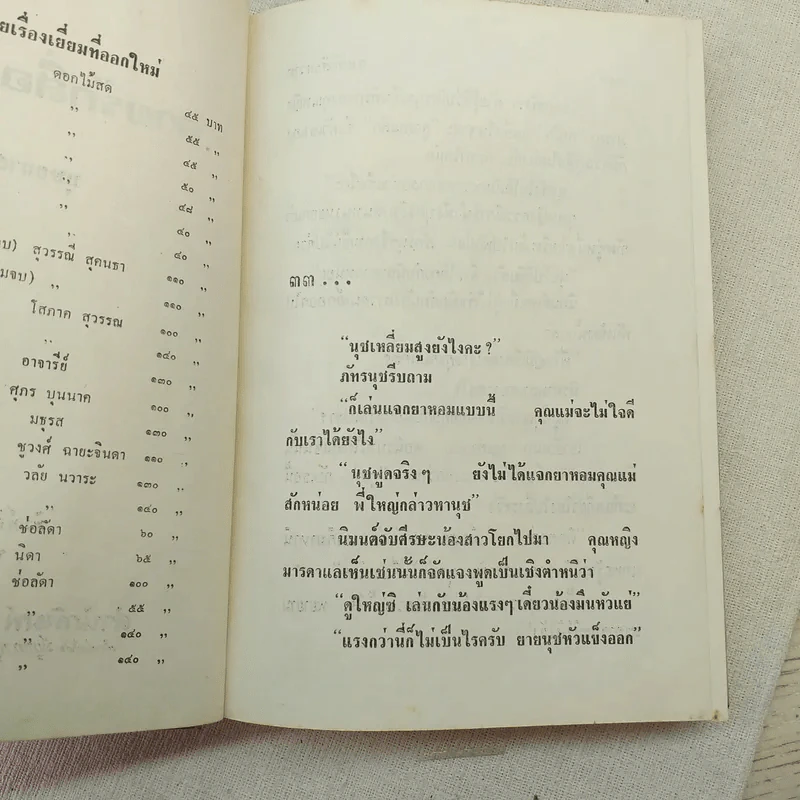 ยเรื่องเยี่ยมที่ออกใหม่
ดอกไม้สด ๔๕ บาท
,, ๕๕ ,,
,, ๔๕ ,,
,, ๕๐ ,,
,, ๔๘ ,,
,, ๔๐ ,,
บ) สุวรรณี สุคนธา ๔๐ ,,
มจบ) ,, ๑๑๐ ,,
โสภาค สุวรรณ ๑๑๐ ,,
,, ๑๐๐ ,,
อาจารีย์ ๑๔๐ ,,
ศุภร บุนนาค ๑๓๐ ,,
มธุรส ๑๐๐ ,,
ชูวงศ์ ฉายะจินดา ๑๓๐ ,,
วลัย นวาระ ๑๑๐ ,,
,, ๑๓๐ ,,
ช่อลัดา ๑๔๐ ,,
นิดา ๖๐ ,,
ช่อลัดา ๖๕ ,,
,, ๑๐๐ ,,
,, ๕๕ ,,
,, ๑๔๐ ,,
๑๔๐ ,,
๓๓...
“นุชเหลี่ยมสูงยังไงคะ?”
ภัทรนุชรีบถาม
“ก็เล่นแจกยาหอมแบบนี้ คุณแม่จะไม่ใจดี
กับเราได้ยังไง”
“นุชพูดจริงๆ ยังไม่ได้แจกยาหอมคุณแม่
สักหน่อย พี่ใหญ่กล่าวหานุช”
นิมนต์จับศีรษะน้องสาวโยกไปมา คุณหญิง
มารดาแลเห็นเช่นนั้นก็จัดแจงพูดเป็นเชิงตำหนิว่า
“ดูใหญ่ซิ เล่นกับน้องแรงๆ เดี๋ยวน้องมึนหัวแย่”
“แรงกว่านี้ก็ไม่เป็นไรครับ ยายนุชหัวแข็งออก”